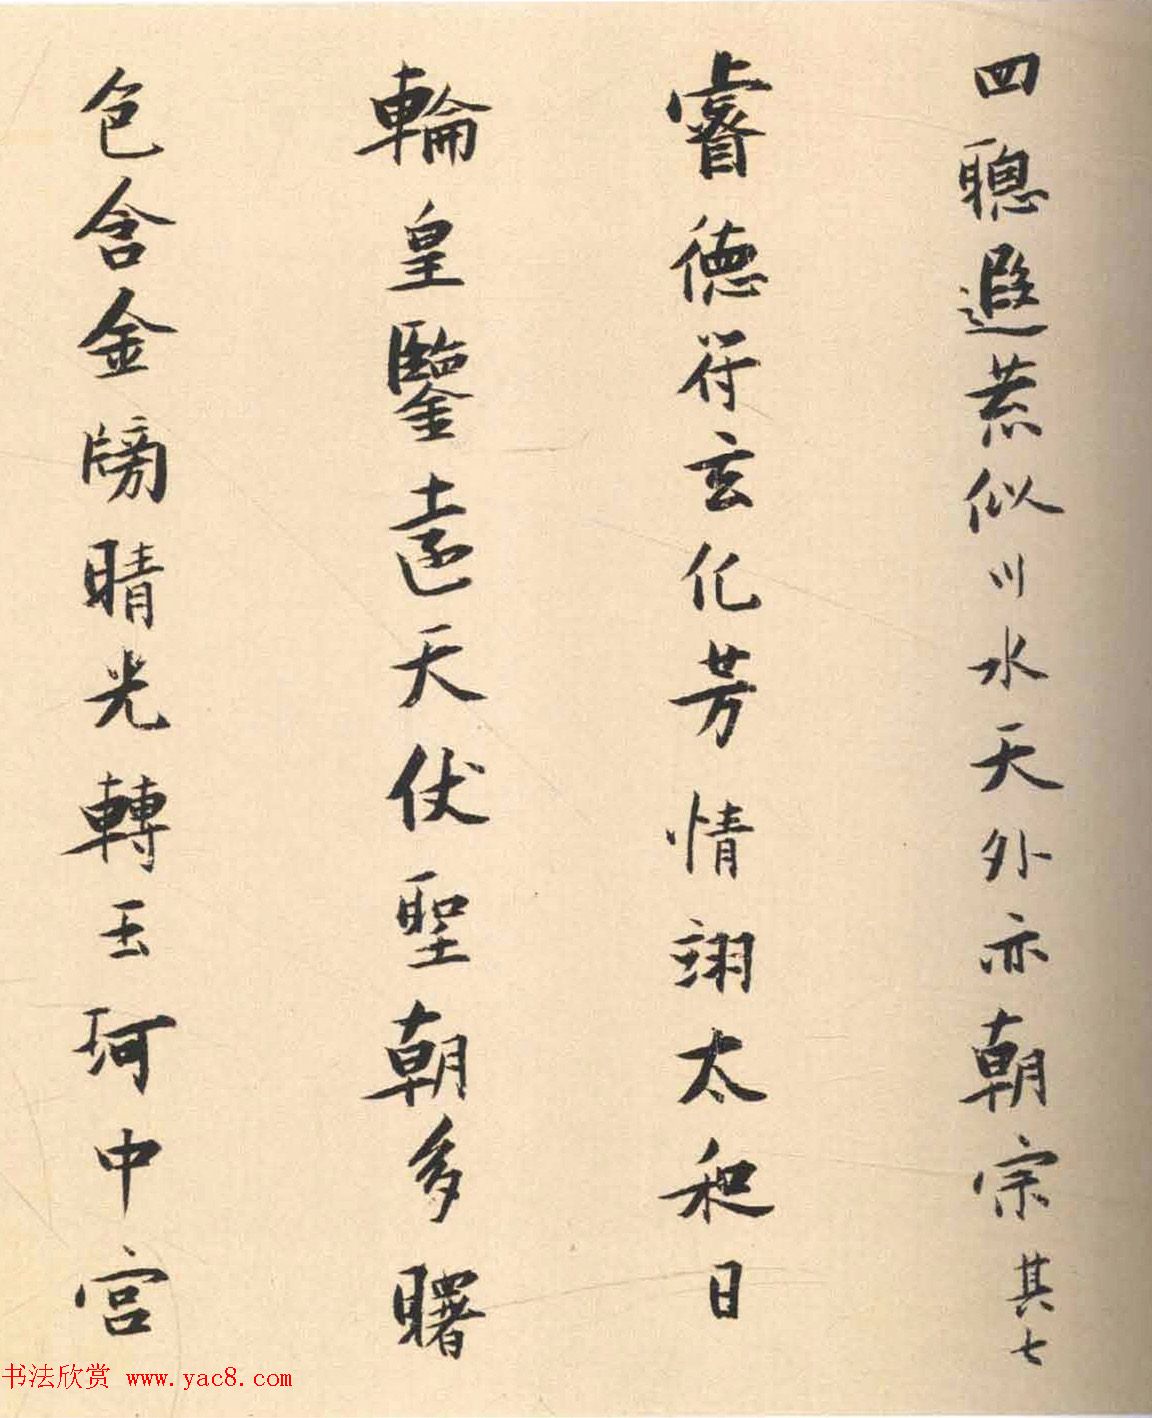 四聰遐荒似川水天外亦朝宗其七
睿德符玄化芳情翊太和日
輪皇鑒遠天仗聖朝多曙
色含金牓晴光轉玉珂中宮
书法欣赏 www.yac8.com